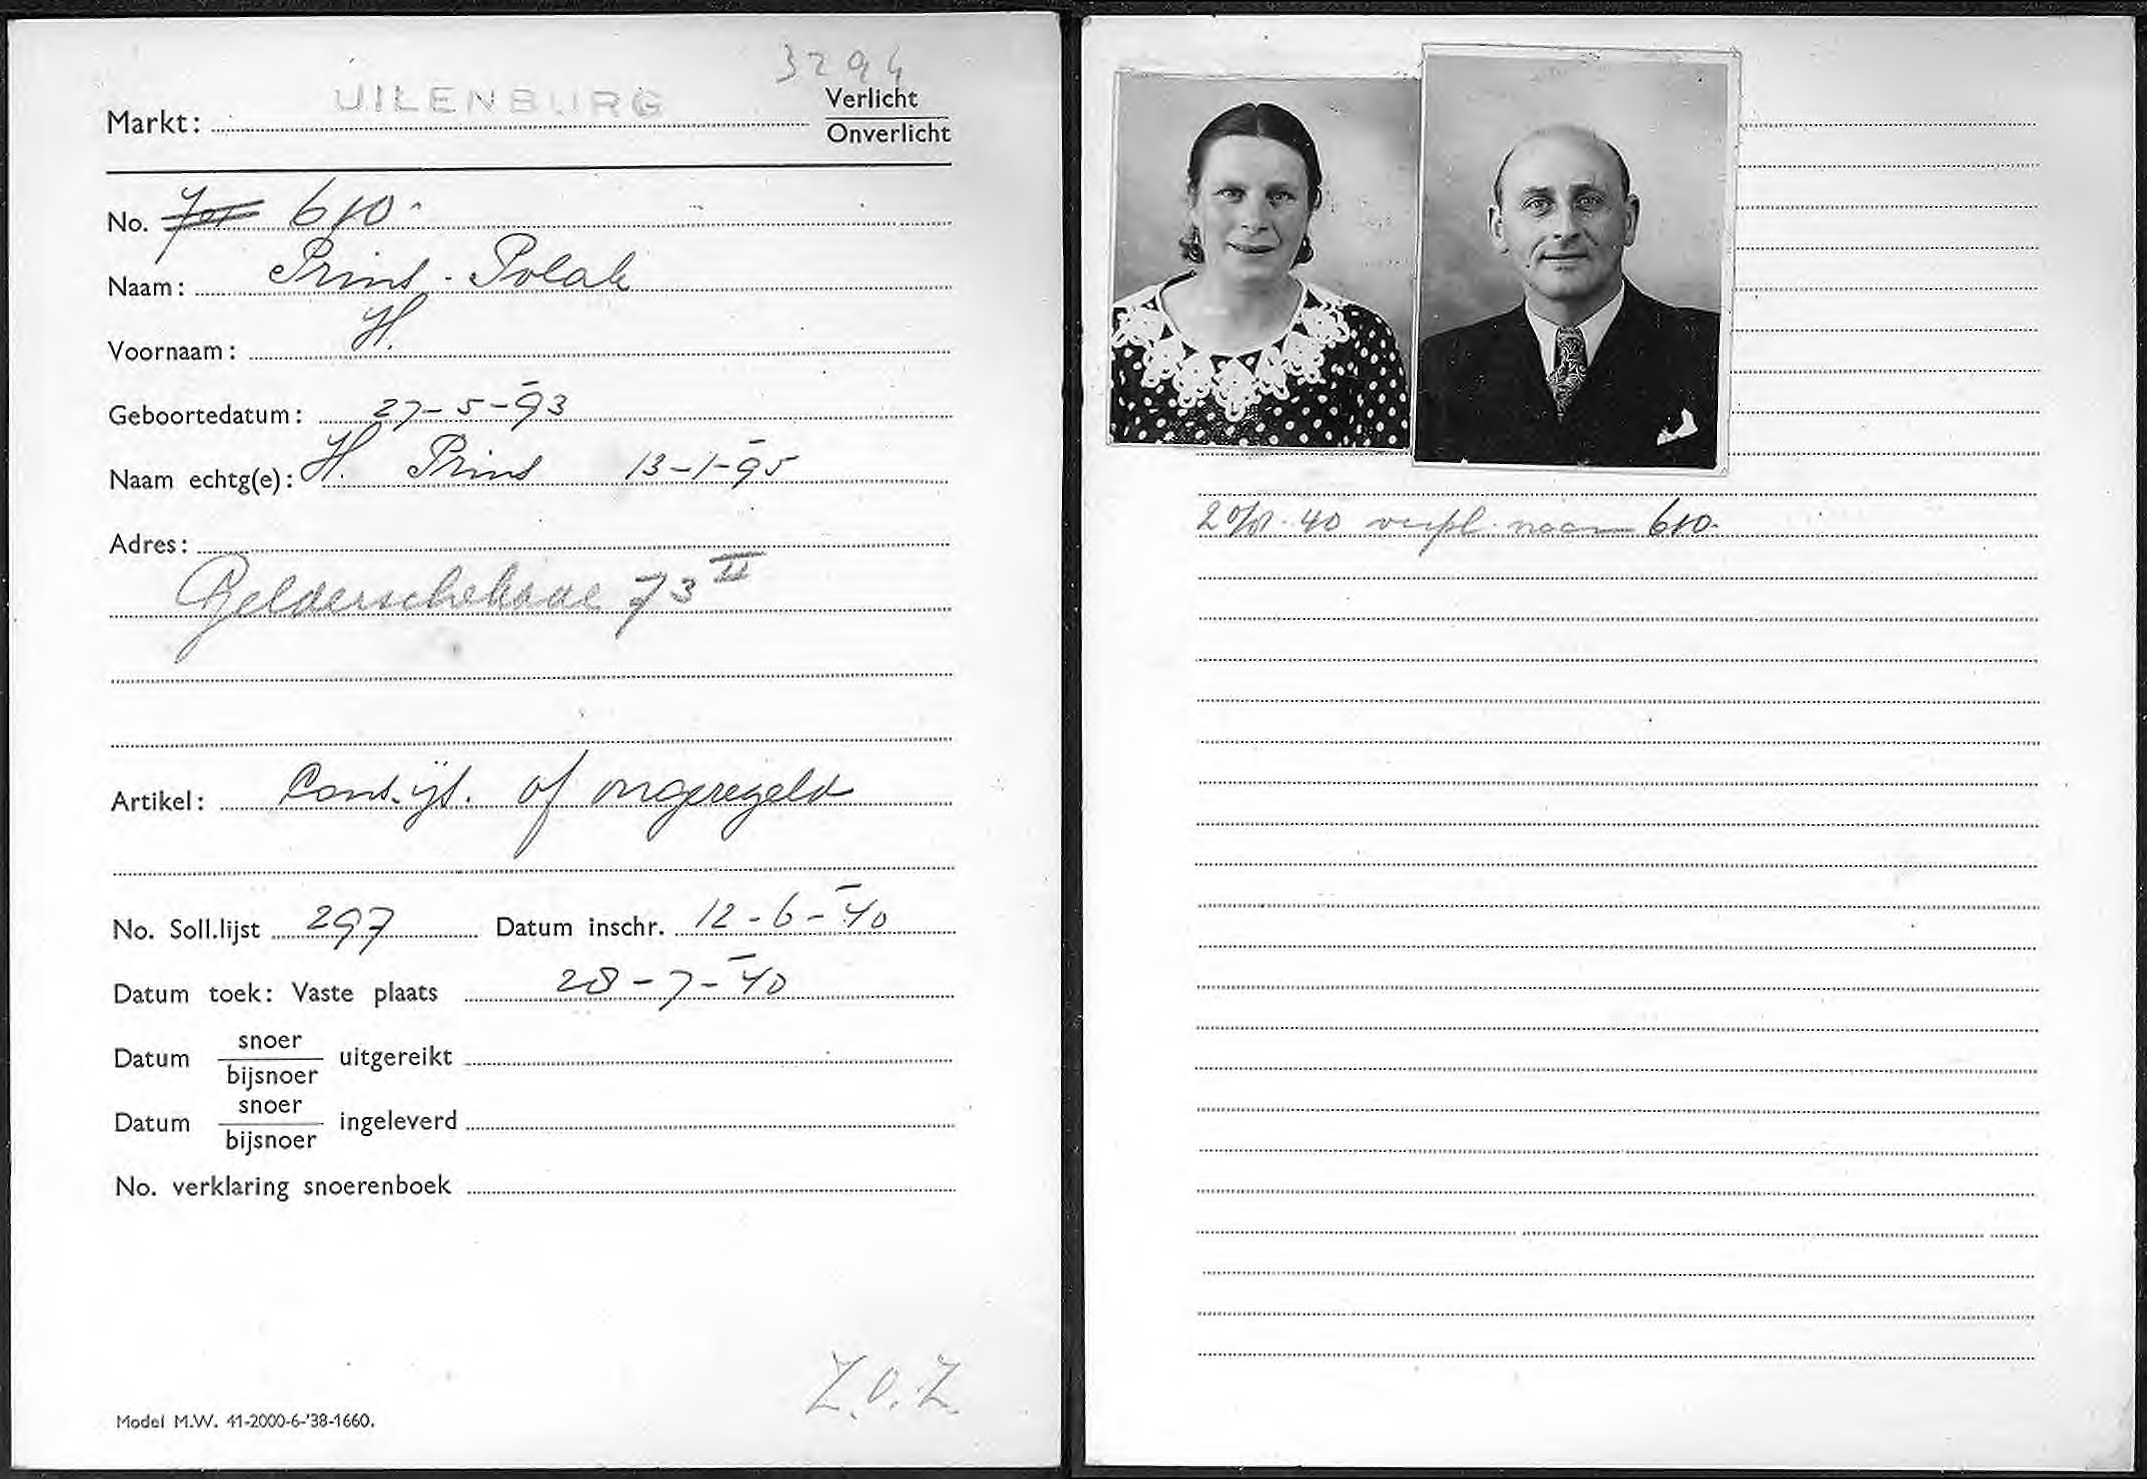 3294
UILENBURG
Markt: Verlicht
Onverlicht
No. 610.
Naam: Prins - Polak
Voornaam: H.
Geboortedatum: 27-5-93
Naam echtg(e): H. Prins 13-1-95
Adres:
Gelderschekade 73 II
Artikel: Cons. ijs. of ongeregeld
No. Soll.lijst 297 Datum inschr. 12-6-40
Datum toek: Vaste plaats 28-7-40
Datum snoer/bijsnoer uitgereikt
Datum snoer/bijsnoer ingeleverd
No. verklaring snoerenboek
Z.O.Z.
Model M.W. 41-2000-6-'38-1660.
40 verpl. naar 610.